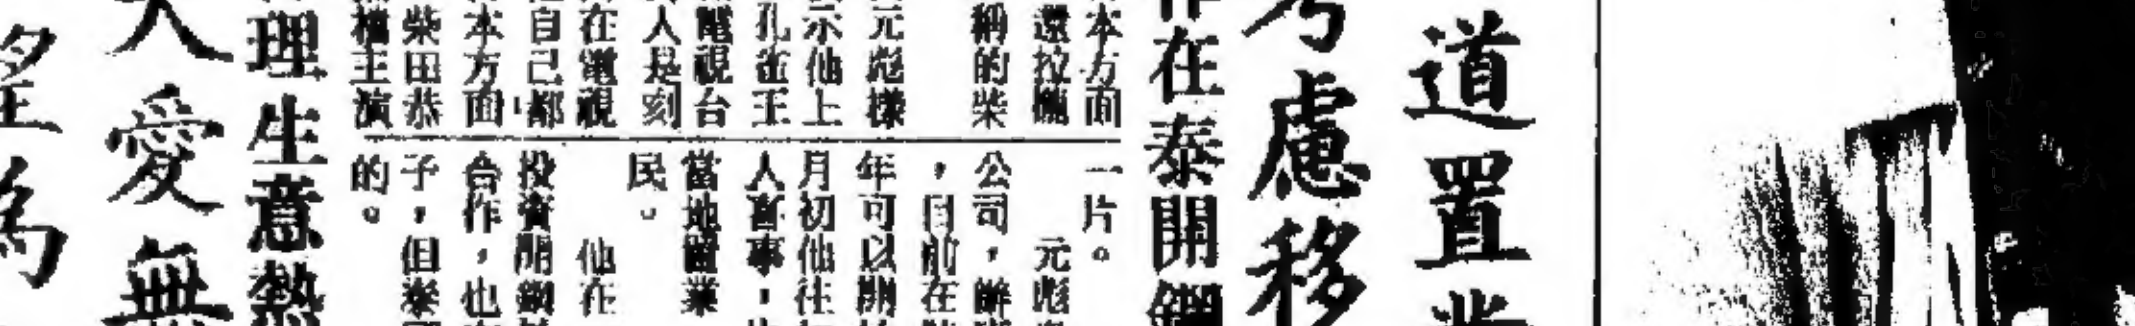 道置業
考慮移
作在泰開鋼
本方面
還拉攏
稱的柴
元彪樣
示他上
孔雀王
電視台
人是刻
在電視
自己都
本方面
柴田恭
主演
一片。
元彪
公司，
，目前在
年可以開
月初他往
人喜事，
當地置業
民。
他在
投資開鋼
合作，也
子，但泰國
的。
理生意熱
人愛無
望為